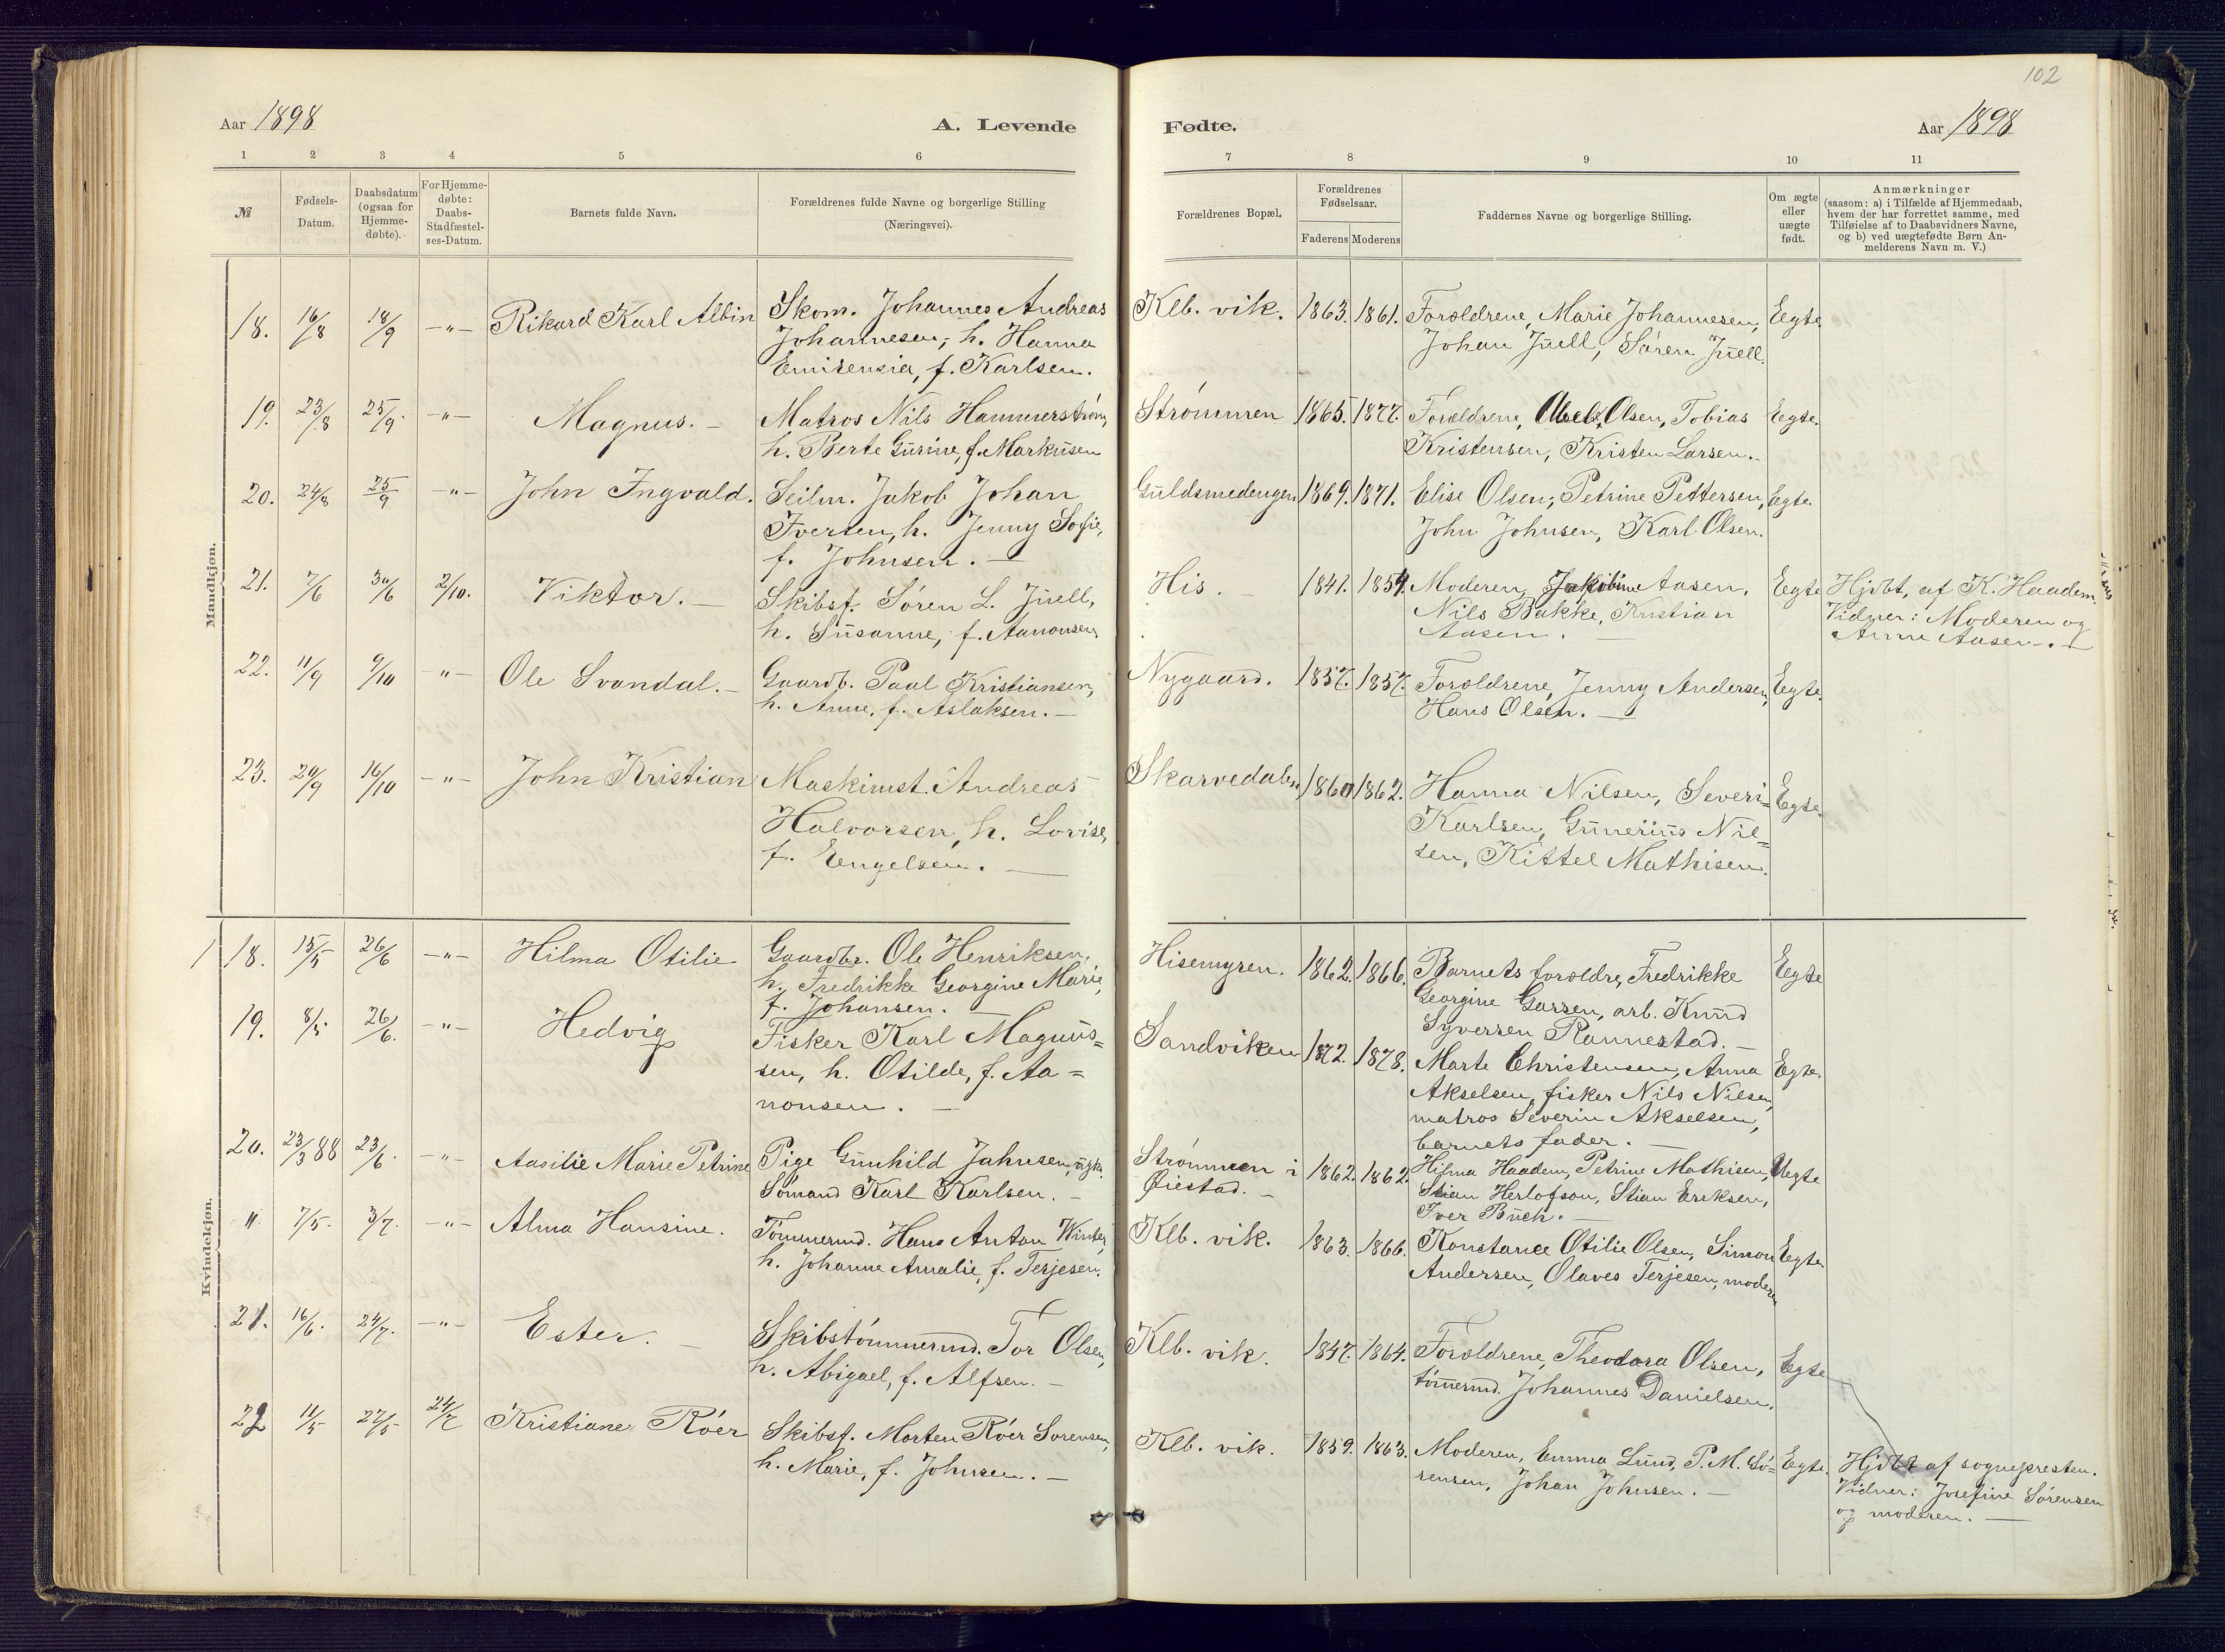 102
Aar 1898
A. Levende
Fødte.
Aar 1898
1 2 3 4 5 6
7 8 9 10 11
№
Fødsels-
Datum.
Daabsdatum
(ogsaa for
Hjemme-
døbte).
For Hjemme-
døbte:
Daabs-
Stadfæstel-
ses-Datum.
Barnets fulde Navn.
Forældrenes fulde Navne og borgerlige Stilling
(Næringsvei).
Forældrenes Bopæl.
Forældrenes
Fødselsaar.
Faderens Moderens
Faddernes Navne og borgerlige Stilling.
Om ægte
eller
uægte
født.
Anmærkninger
(saasom: a) i Tilfælde af Hjemmedaab,
hvem der har forrettet samme, med
Tilføielse af to Daabsvidners Navne,
og b) ved uægtefødte Børn An-
melderens Navn m. V.)
Mandkjøn.
18. 16/8 18/9 -"- Rikard Karl Albin Skom. Johannes Andreas
Johannesen, h. Hanna
Emirensia, f. Karlsen.
Klb. vik. 1863. 1861. Forældrene, Marie Johannesen, Egte
Johan Juell, Søren Juell.
19. 23/8 25/9. -"- Magnus. - Matros Nils Hammerstrøm,
h. Berte Gurine, f. Markusen
Strømmen 1865. 1877. Forældrene, Olsen, Tobias Egte.
Kristensen, Kristen Larsen.
20. 24/8 25/9 -"- John Ingvald. Seilm. Jakob Johan
Iversen, h. Jenny Sofie,
f. Johnsen. -
Guldsmedengen 1869. 1871. Elise Olsen, Petrine Pettersen, Egte.
John Johnsen, Karl Olsen.
21. 7/6 30/6 2/10. Viktor. - Skibsf. Søren L. Juell,
h. Susanne, f. Aanonsen.
His. - 1841. 1854. Moderen, Jakobine Aasen, Egte Hjdbt, af K. Haadem.
Nils Bakke, Kristian Vidner: Moderen og
Aasen. - Anne Aasen. -
22. 11/9 9/10 -"- Ole Svandal. - Gaardb. Paal Kristiansen,
h. Anne, f. Aslaksen. -
Nygaard. 1857. 1857. Forældrene, Jenny Andersen, Egte.
Hans Olsen. -
23. 20/9 16/10 -"- John Kristian Maskinist Andreas
Halvorsen, h. Lovise,
f. Engelsen. -
Skarvedalen 1860 1862. Hanna Nilsen, Severi= Egte.
Karlsen, Gunerius Nil=
sen, Kittel Mathisen.
Kvindekjøn.
18. 15/5 26/6 -"- Hilma Otilie Gaardbr. Ole Henriksen,
h. Fredrikke Georgine Marie,
f. Johansen. -
Hisemyren. 1862. 1866. Barnets forældre, Fredrikke Egte
Georgine Garsen, arb. Knud
Syversen Rannestad. -
19. 8/5 26/6. -"- Hedvig Fisker Karl Magnus=
sen, h. Otilde, f. Aa=
nonsen. -
Sandviken 1872. 1878. Marte Christensen, Anna Egte.
Akselsen, fisker Nils Nilsen,
matros Severin Akselsen,
barnets fader. -
20. 23/3 88 23/6. -"- Aasilie Marie Petrine Pige Gunhild Jahnsen, ugk.
Sømand Karl Karlsen. -
Strømmen i 1862. 1862. Hilma Haadem, Petrine Mathisen, Uegte
Øiestad. - Stian Herlofson, Stian Eriksen,
Iver Buch. -
" 7/5. 3/7. -"- Alma Hansine. Tømmermd. Hans Anton Winter,
h. Johanne Amalie, f. Terjesen.
Klb. vik. 1863. 1866. Konstance Otilie Olsen, Simon Egte.
Andersen, Olaves Terjesen, moderen
21. 16/6. 24/7. -"- Ester. - Skibstømmermd. Tor Olsen,
h. Abigael, f. Alfsen. -
Klb. vik. 1847. 1864. Forældrene, Theodora Olsen, Egte
tømermd. Johannes Danielsen.
22 11/5 27/5 24/7 Kristiane Röer Skibsf. Morten Röer Sørensen,
h. Marie, f. Johnsen. -
Klb. vik. 1859. 1863. Moderen, Emma Lund, P. M. Sø- Egte. Hjdbt af sognepresten.
rensen, Johan Johnsen. - Vidner: Josefine Sørensen
og moderen. -